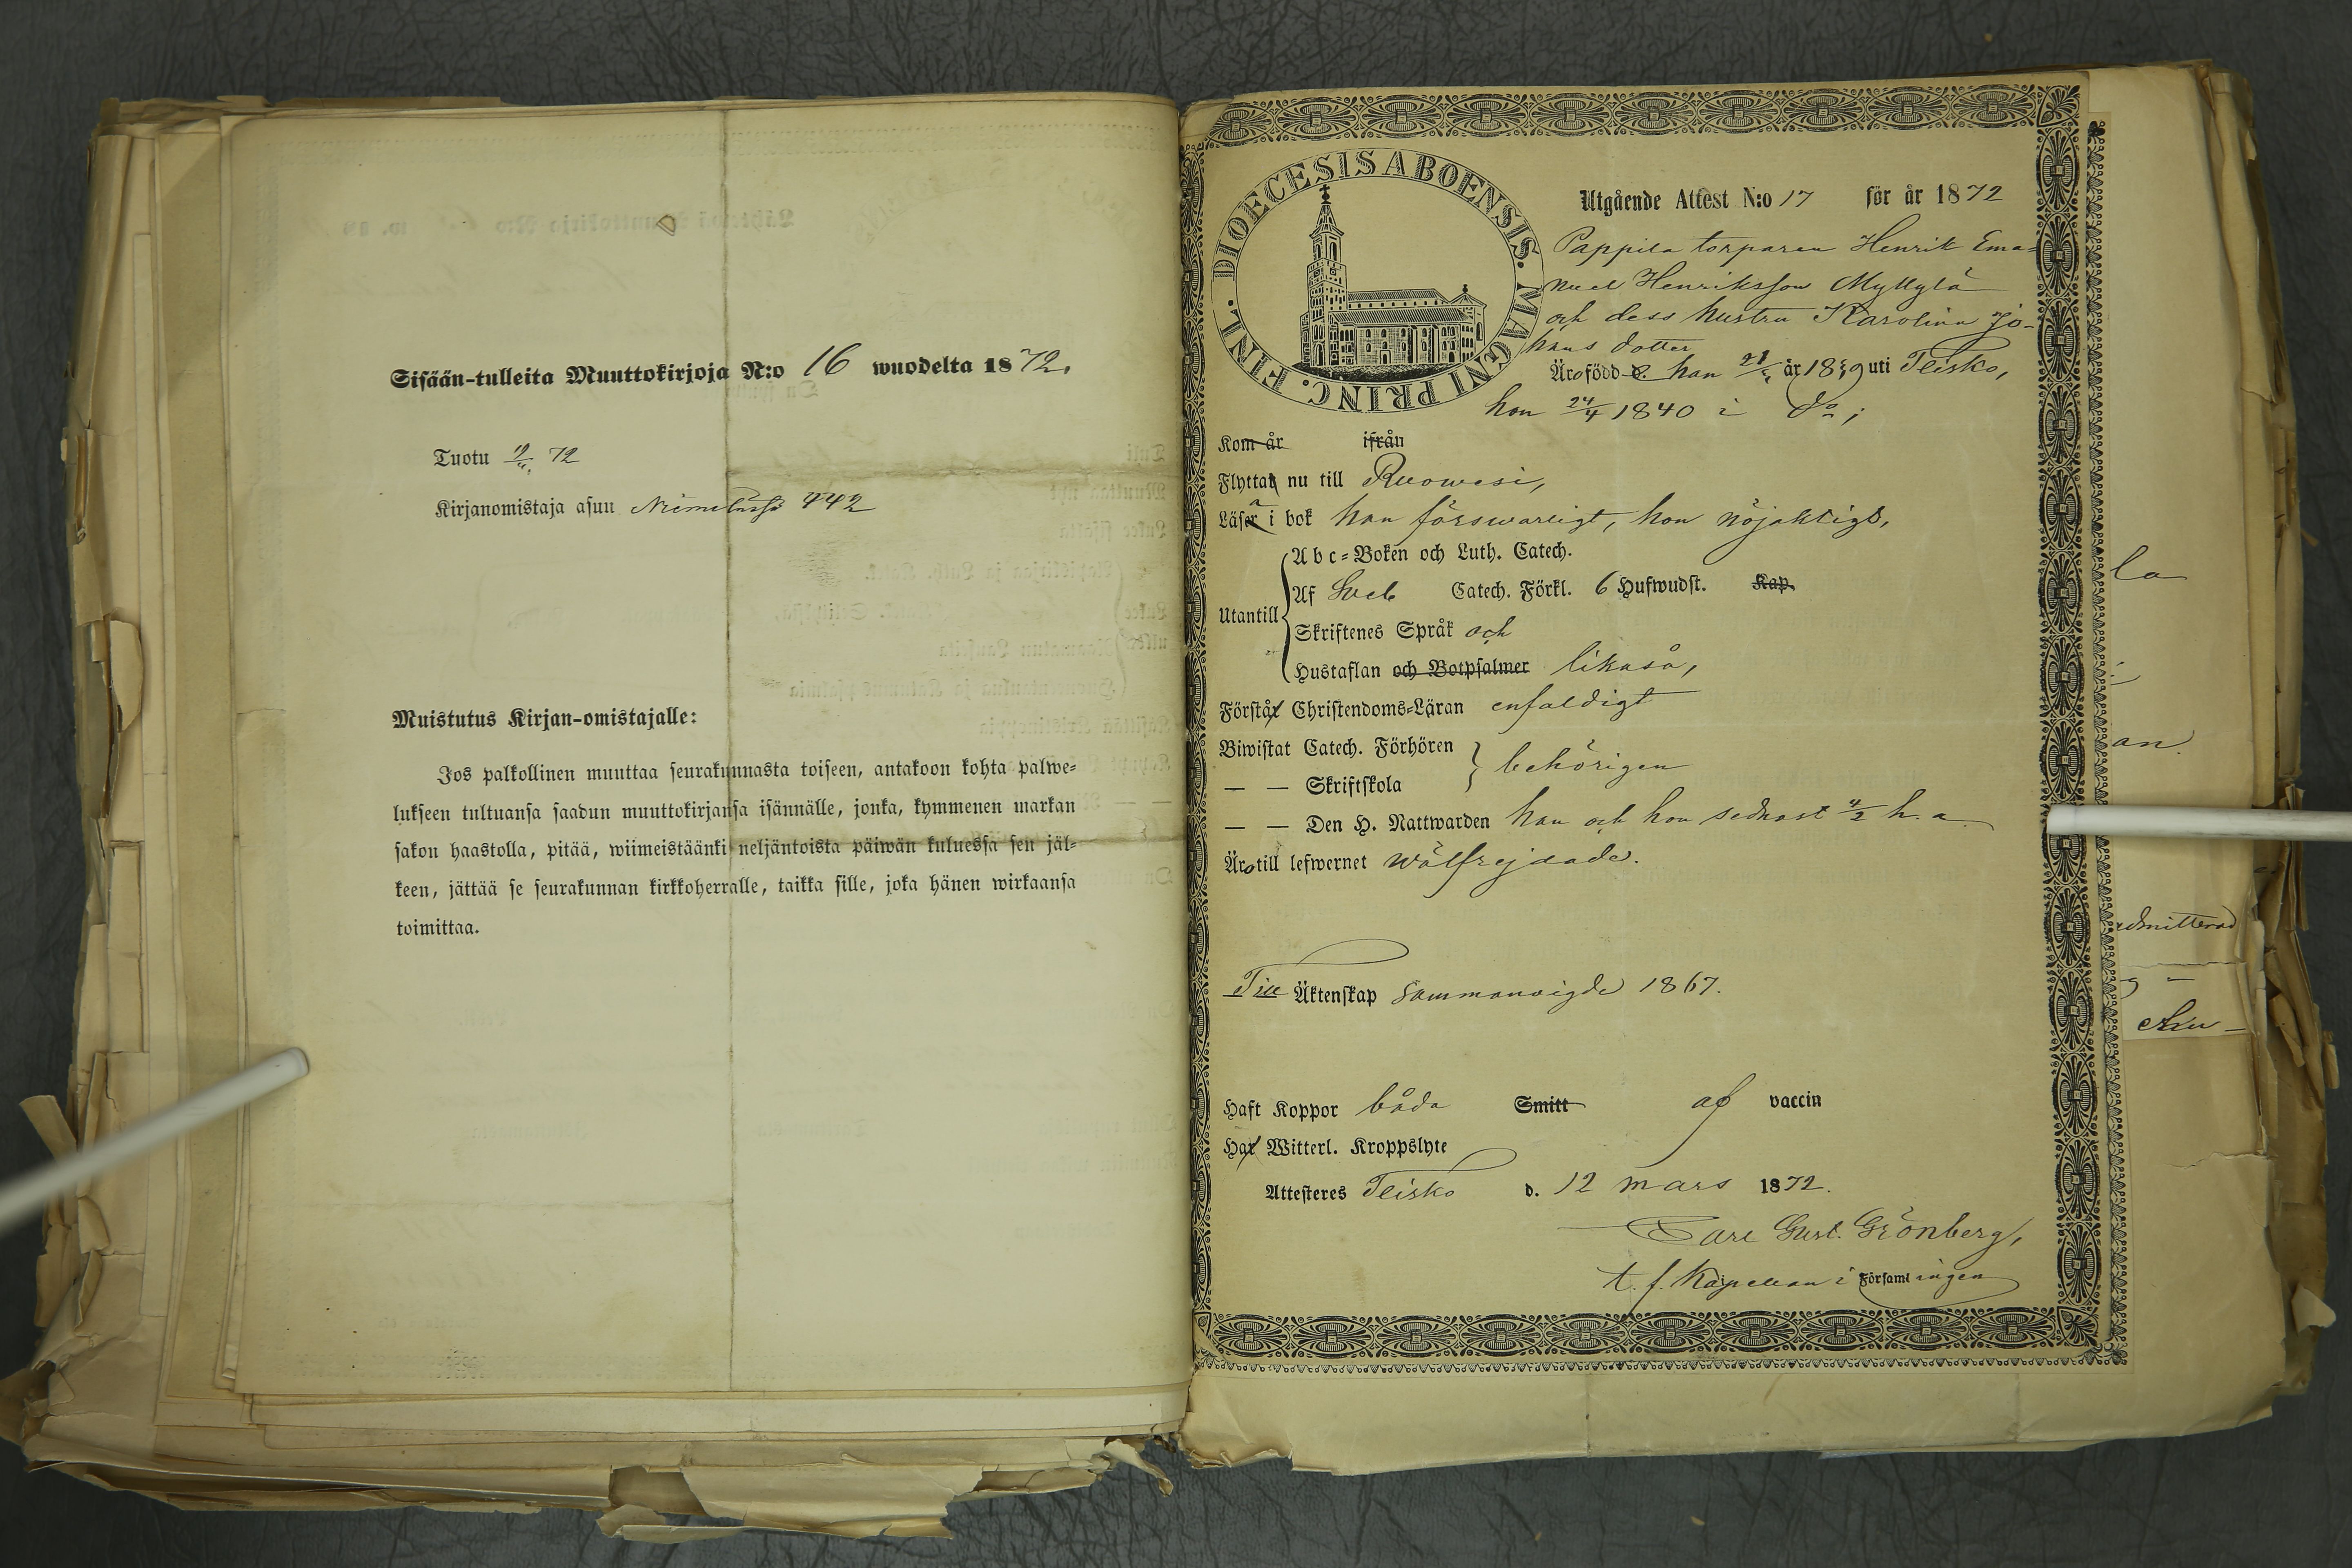 Sisään-tulleita Muuttokirjoja N:o 16 wuodelta 1872.
Tuotu 72
Kirjanomistaja asuu 442
Muistutus Kirjan-omistajalle:
Jos palkollinen muuttaa seurakunnasta toiseen, antakoon kohta palwe-
lukseen tultuansa saadun muuttokirjansa isännälle, jonka, kymmenen markan
sakon haastolla, pitää, wiimeistäänki neljäntoista päiwän kuluessa sen jäl-
keen, jättää se seurakunnan kirkkoherralle, taikka sille, joka hänen wirkaansa
toimittaa.
DIOECESIS ABOENSIS. MAGNI PRINC. FINL.
Utgående Attest N:o 17 för år 1872
Pappila torparen Henrik Ema-
nuel Henriksson Myllylä
och dess hustru Karolina Jo-
hans dotter
Äro född d. han år 18 uti Teisko,
hon 24/4 1840 i do;
Kom år ifrån
Flytta nu till Ruowesi,
Läsa i bok han förswarligt, hon nöjaktigt,
Utantill
Abc-Boken och Luth. Catech.
Af Sveb Catech. Förkl. 6 Hufwudst. Kap.
Skriftenes Språk och
Hustaflan och Botpsalmer likaså,
Förstå Christendoms-Läran enfaldigt
Biwistat Catech. Förhören
— — Skriftskola
behörigen
— — Den H. Nattwarden han och hon sednast 4/2 h. a.
Äro till lefwernet wälfrejdade.
Till Äktenskap sammanvigde 1867.
Haft Koppor båda Smitt af vaccin
Har Witterl. Kroppslyte
Attesteres Teisko d. 12 mars 1872.
Carl Gust. Grönberg,
t. f. Kapellan i Församlingen
la
an.
admitterad